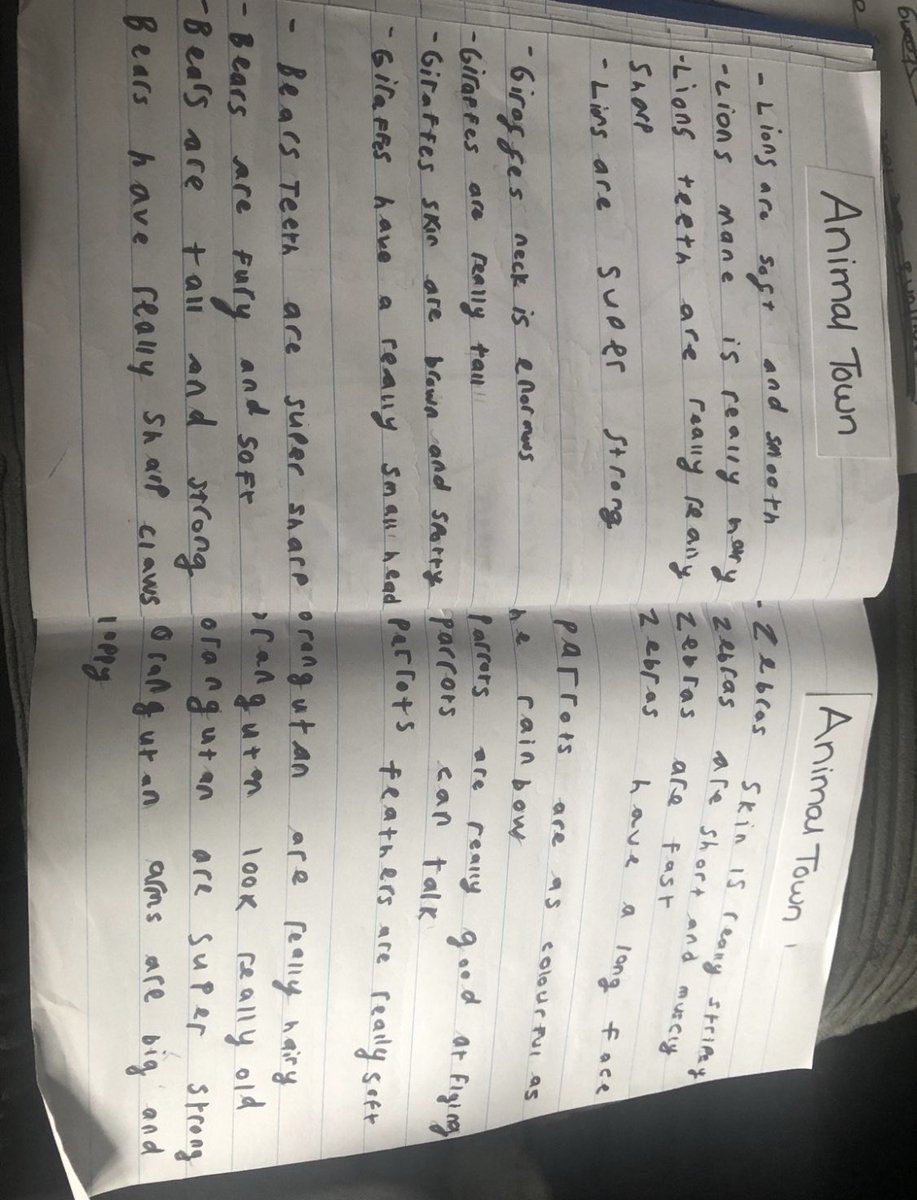 Animal Town
- Lions are soft and smooth
- Lions mane is really hary
- Lions teeth are really really
sharp
- Lions are super strong
- Giraffes neck is enormus
- Giraffes are really tall
- Giraffes skin are brown and
- Giraffes have a really small head
- Bears Teeth are super sharp
- Bears are fury and soft
- Bears are tall and strong
Bears have really sharp claws
Animal Town
- Zebras skin is reany stripey
zebras are short and muscly
zebras are fast
zebras have a long face
parrots are as colourful as
he rainbow
parrots are really good at flying
parrots can talk
parrots feathers are really soft
orangutan are really hairy
orangutan look really old
orangutan are super strong
orangutan arms are big and
loppy